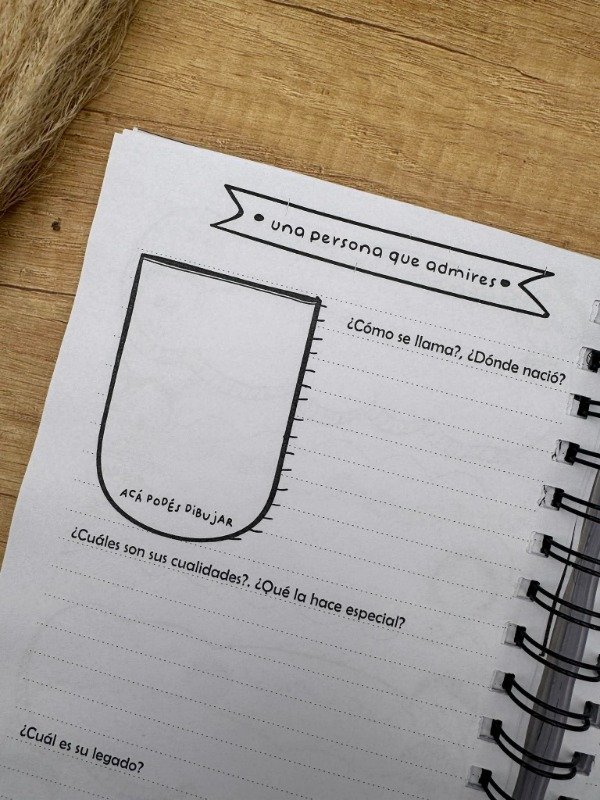 una persona que admires
¿Cómo se llama?, ¿Dónde nació?
ACÁ PODÉS DIBUJAR
¿Cuáles son sus cualidades?. ¿Qué la hace especial?
¿Cuál es su legado?